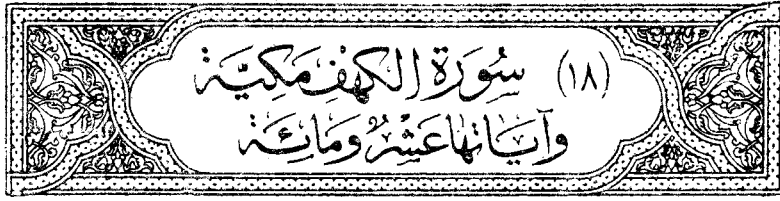 (١٨) سُورَة الكهفِ مَكيَّة
وَآيَاتها عَشْرُ وَمَائِة